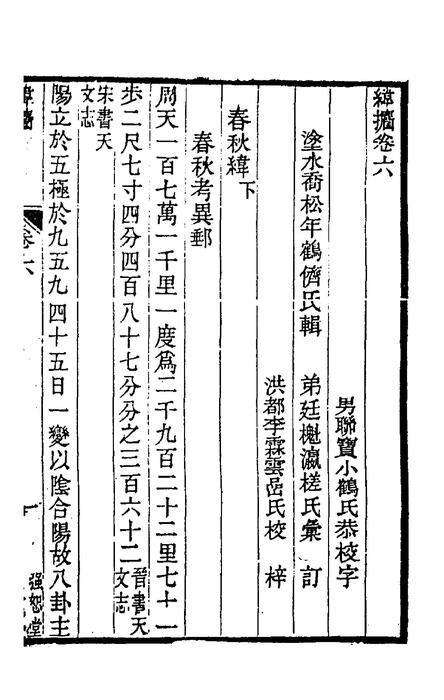 緯攟卷六
男聯寶小鶴氏恭校字
塗水喬松年鶴儕氏輯 弟廷櫆瀛槎氏彙訂
洪都李霖雲嵒氏校梓
春秋緯下
春秋考異郵
周天一百七萬一千里一度爲二千九百二十二里七十一
步二尺七寸四分四百八十七分分之三百六十二晉書天文志
宋書天文志
陽立於五極於九五九四十五日一變以陰合陽故八卦主
卷六
一
强恕堂